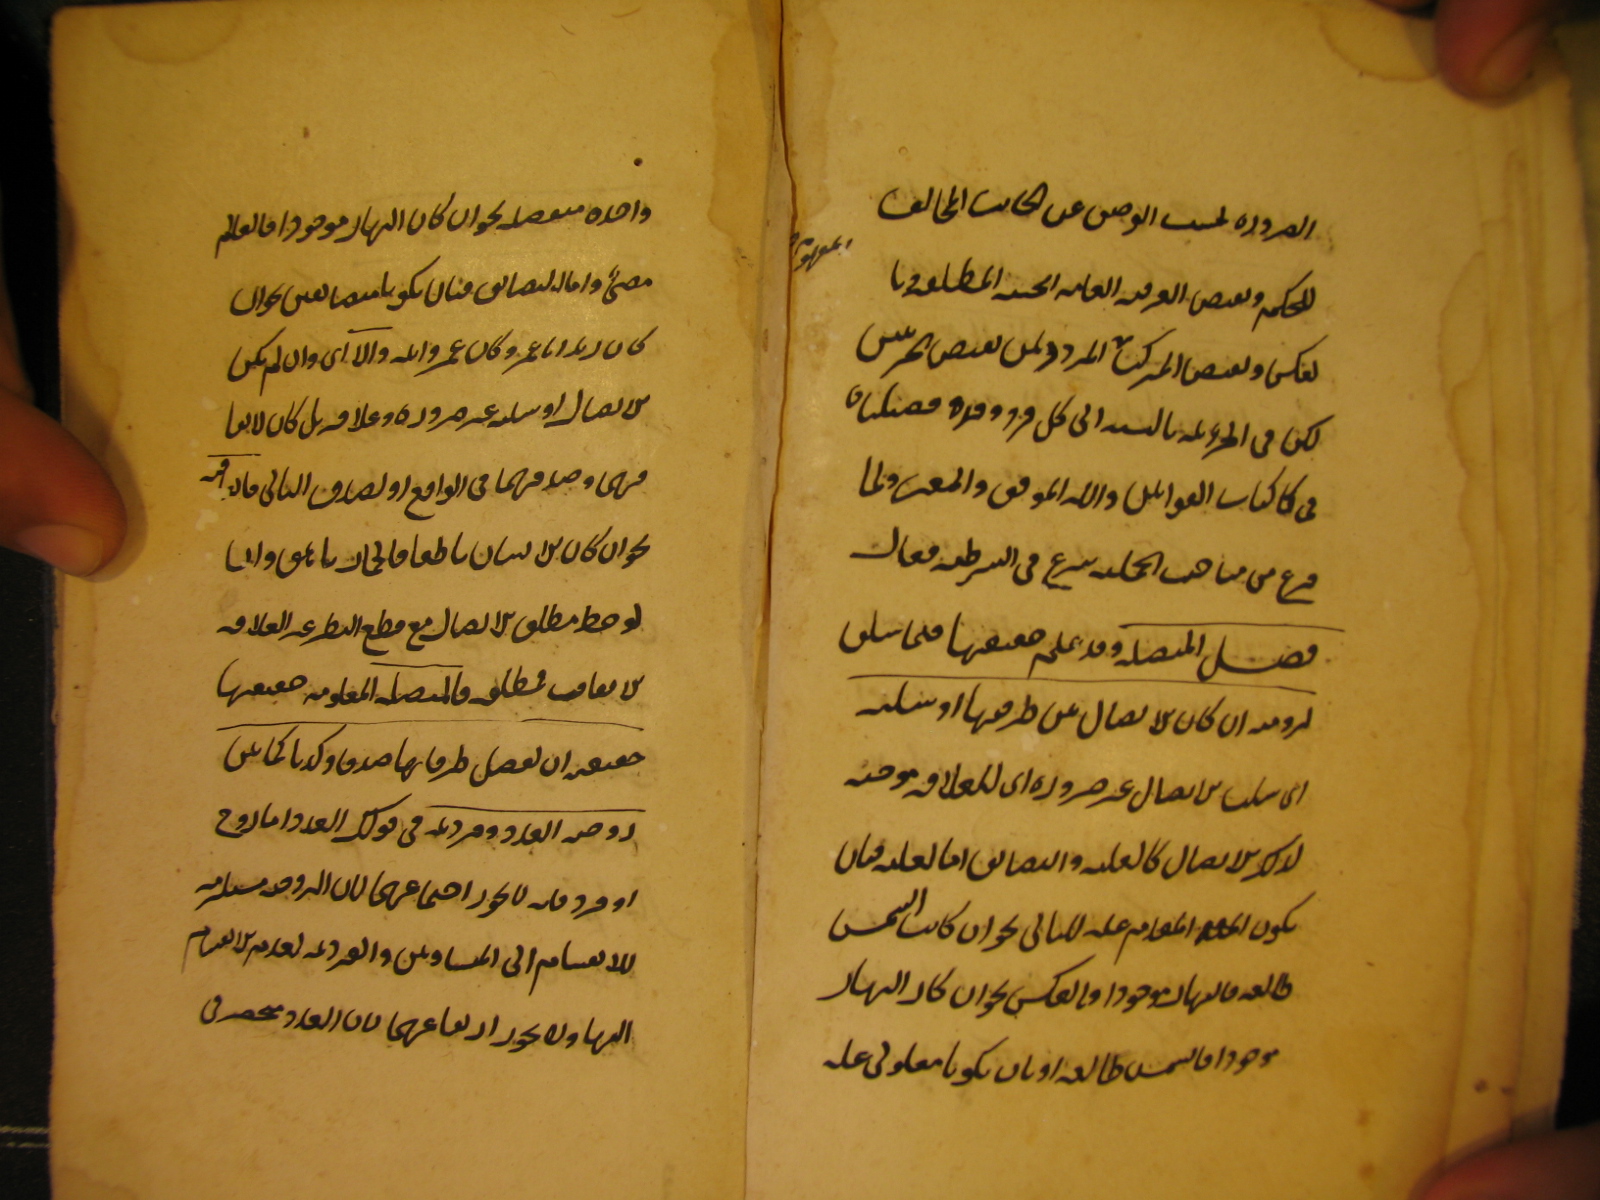 الضرورة بحسب الوصف عن الجانب المخالف
للحكم ونقيض العرفية العامة الحينية المطلقة وبا
لعكس ونقيض المركبة المردد بين نقيض الجزئين
لكن في الجزئية بالنسبة الى كل فرد فرد
في والله الموفق والمعين ولما
فرغ من مباحث الحملية شرع في الشرطية فقال
فصل المتصلة وقد علم حقيقتها فيما سلف
لزومية ان كان الاتصال بين طرفيها او سلبه
اى سلب الاتصال عن ضرورة اى لعلاقة موجبة
لذلك الاتصال كالعلية والتضايف اما العلية فبان
يكون المقدم علة للتالى نحو ان كانت الشمس
طالعة فالنهار موجود او بالعكس نحو ان كان النهار
موجودا فالشمس طالعة او بان يكونا معلولى علة
المفهوم
واحدة نحو ان كان النهار موجودا فالعالم
مضئ واما التضايف فبان يكونا متضايفين نحو ان
كان زيد ابا عمرو كان عمرو ابنه والا اى وان لم يكن
الاتصال او سلبه عن ضرورة وعلاقة بل كان
فى الواقع او لصدق التالى فاتفاقية
نحو ان كان الانسان ناطقا فالحمار ناهق واذا
لوحظ مطلق الاتصال مع قطع النظر عن العلاقة
والاتفاق فمطلقة فالمنفصلة المعلومة حقيقتها
حقيقية ان تفصل طرفاها صدقا وكذبا كما بين
زوجية العدد وفرديته فى قولك العدد اما زوج
او فرد فانه لا يجوز اجتماعهما لان الزوجية مستلزمة
للانقسام الى المتساويين والفردية لعدم الانقسام
اليهما ولا يجوز ارتفاعهما لان العدد منحصر فى